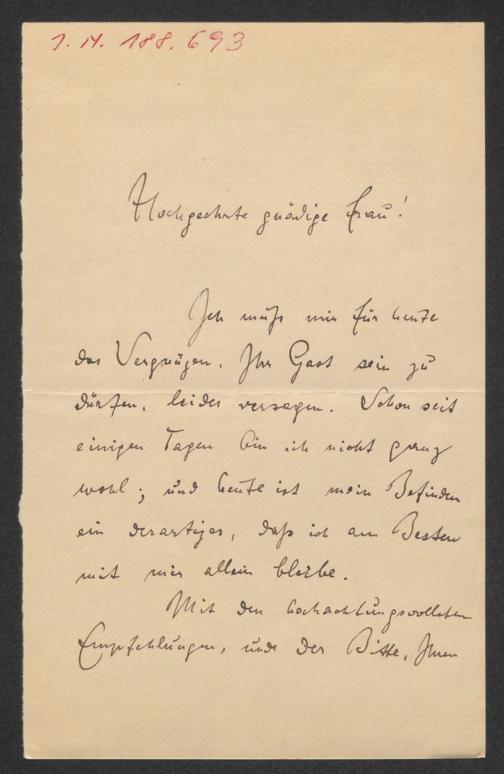 J. N. 188.693
Hochgeehrte gnädige Frau!
Ich muß mir für heute
das Vergnügen, Ihr Gast sein zu
dürfen, leider versagen. Schon seit
einigen Tagen bin ich nicht ganz
wohl; und heute ist mein Befinden
ein derartiges, daß ich am Besten
mit mir allein bleibe.
Mit den hochachtungsvollsten
Empfehlungen, und der Bitte, Ihnen